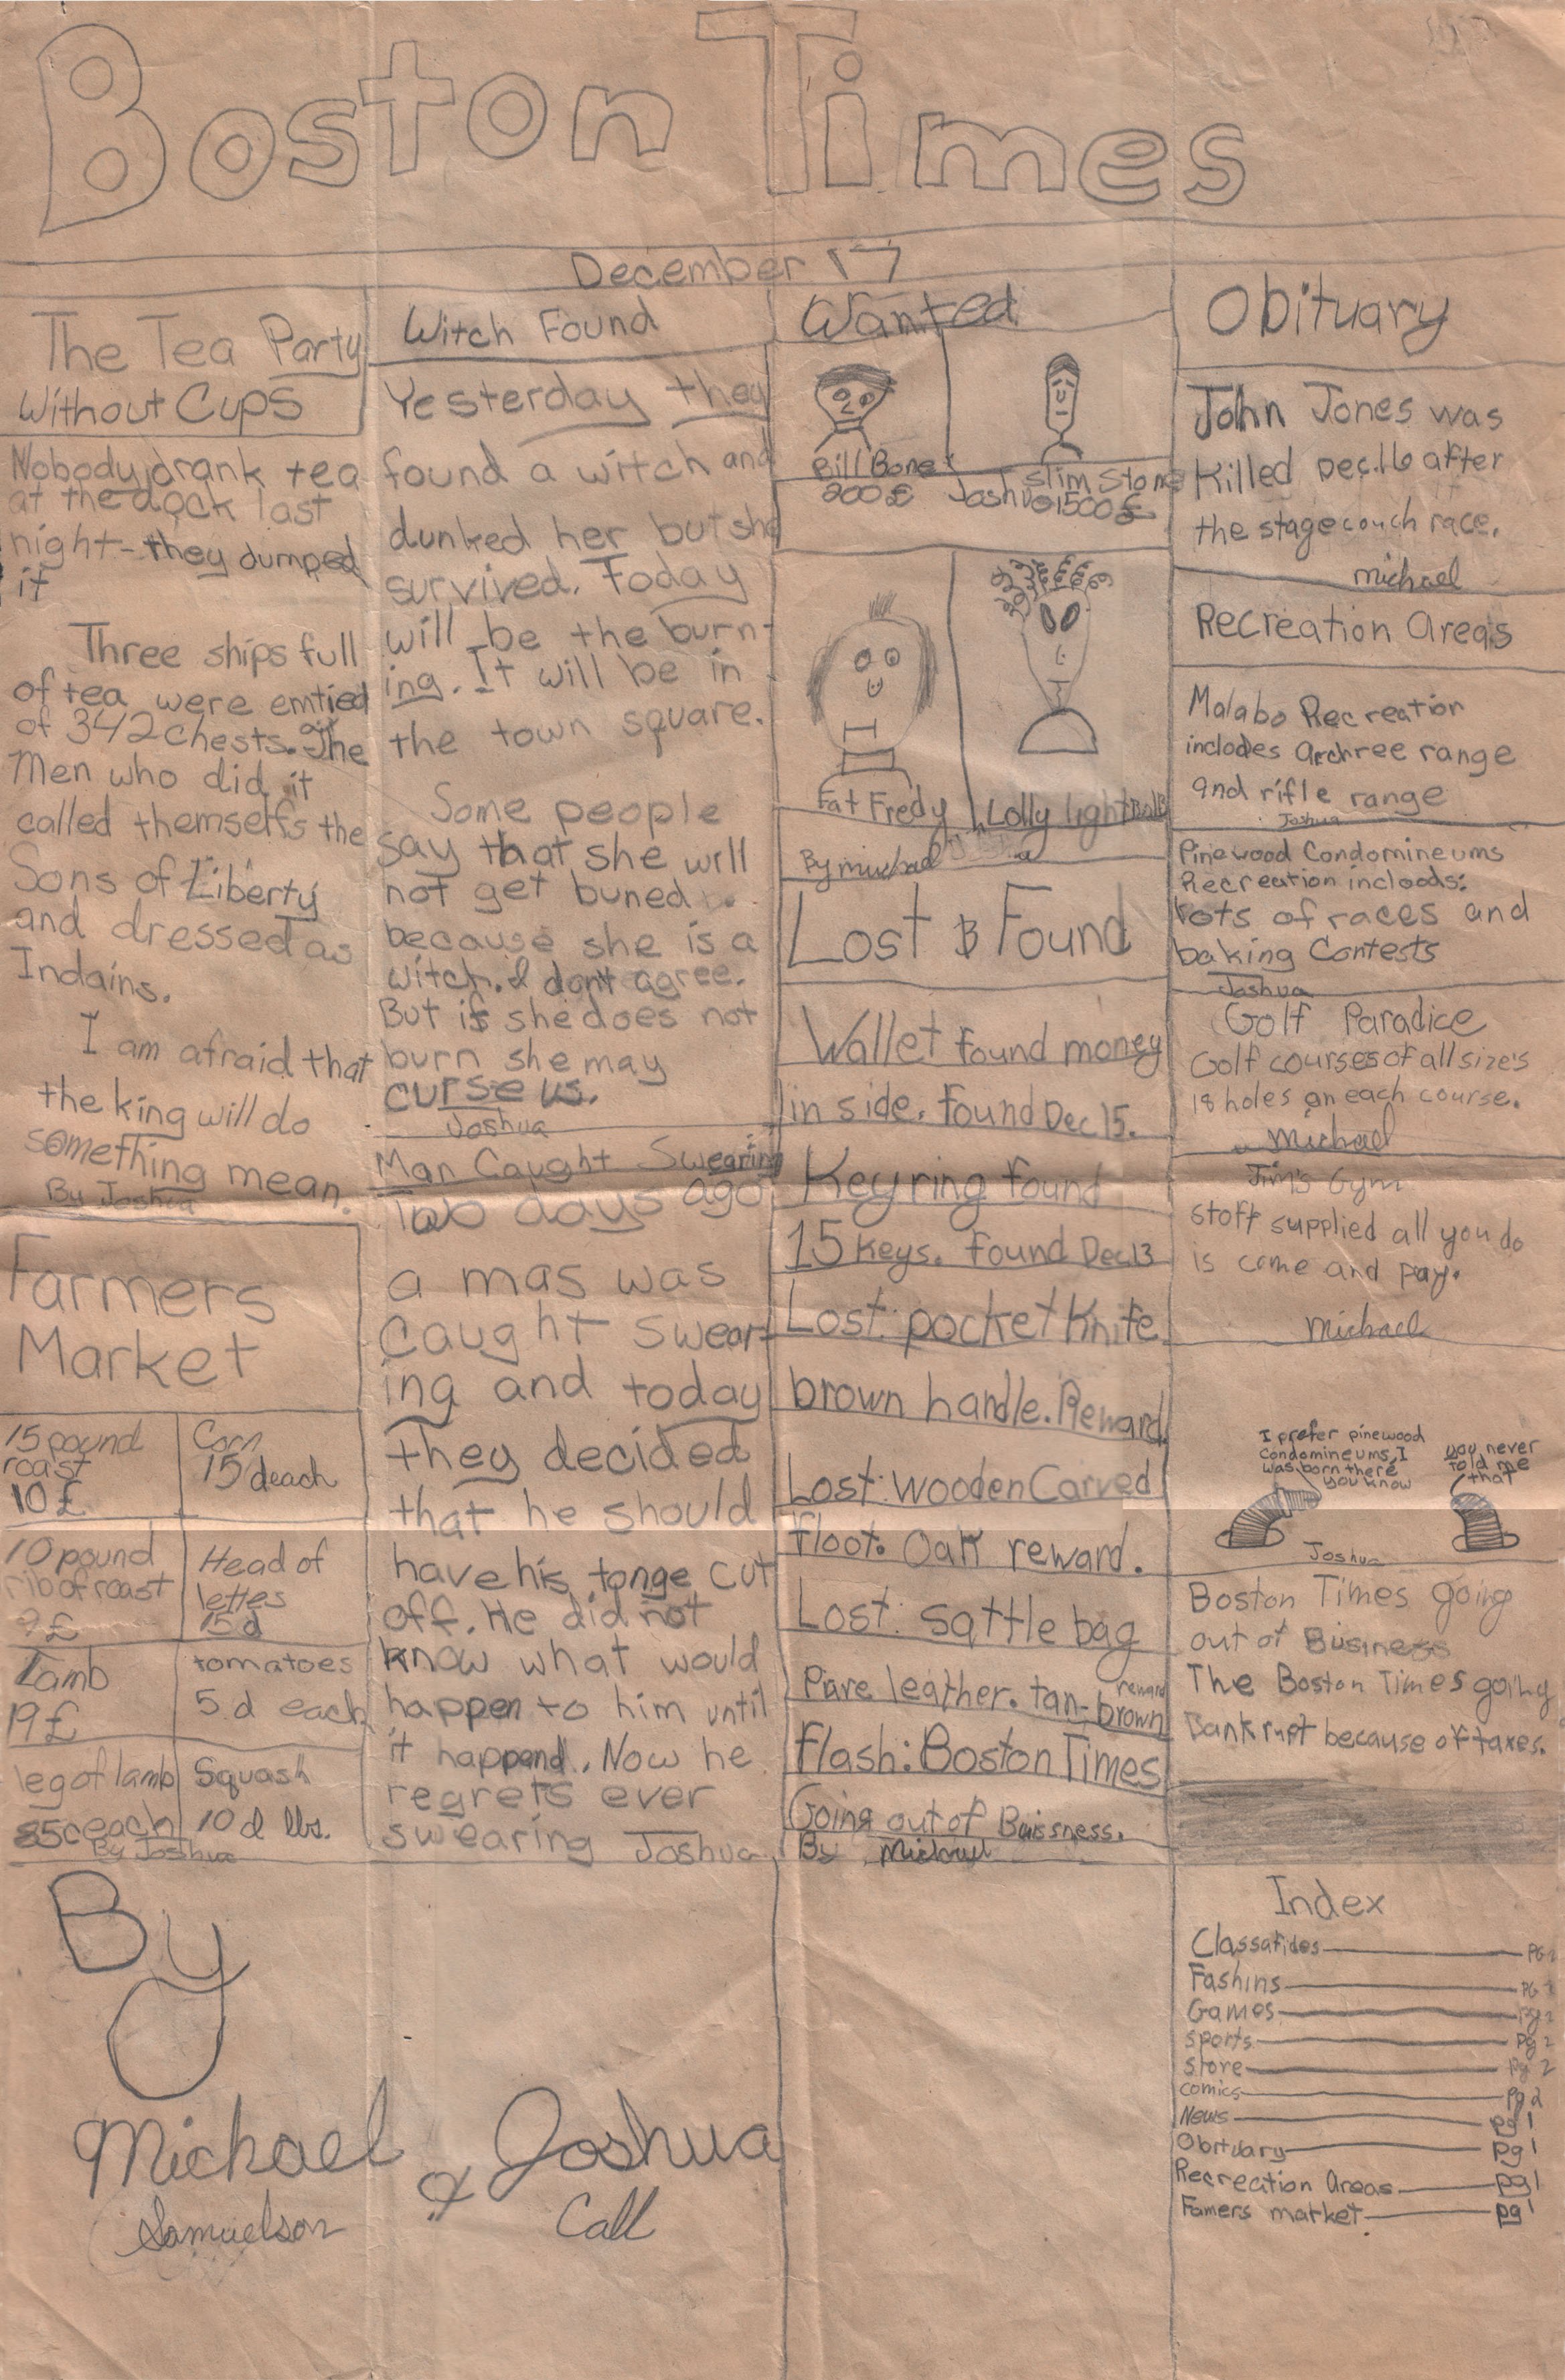 Boston Times
December 17
The Tea Party
Without Cups
Nobody drank tea
at the dock last
night-they dumped
it
Three ships full
of tea were emtied
of 342 chests. The
Men who did it
called themselfs the
Sons of Liberty
and dressed as
Indains.
I am afraid that
the king will do
something mean.
By Joshua
Farmers
Market
15 pound
roast
10£
Corn
15 d each
10 pound
rib of roast
9£
Head of
lettes
15 d
Lamb
19£
tomatoes
5 d each
leg of lamb
85c each
Squash
10 d lbs.
By Joshua
Witch Found
Yesterday they
found a witch and
dunked her but she
survived. Today
will be the burn-
ing. It will be in
the town square.
Some people
say that she will
not get buned
because she is a
witch. I dont agree.
But if she does not
burn she may
curse us.
Joshua
Man Caught Swearing
Two days ago
a mas was
caught swear-
ing and today
they decided
that he should
have his tonge cut
off. He did not
know what would
happen to him until
it happend. Now he
regrets ever
swearing Joshua
Wanted
Bill Bone
200£
Slim Stone
Joshua 1500£
Fat Fredy
Lolly lightBulb
By michael
Lost & Found
Wallet found money
in side. Found Dec 15.
Key ring found
15 keys. Found Dec 13
Lost: pocket Knife
brown handle. Reward.
Lost: wooden Carved
floot. Oak reward.
Lost: sattle bag
Pure leather. tan-brown
reward
Flash: Boston Times
Going out of Buissness.
By Michael
Obituary
John Jones was
Killed Dec.16 after
the stagecouch race.
michael
Recreation Areas
Malabo Recreation
inclodes Archree range
and rifle range
Joshua
Pinewood Condomineums
Recreation incloods:
lots of races and
baking Contests
Joshua
Golf Paradice
Golf courses of all size's
18 holes on each course.
Michael
Jim's Gym
stoff supplied all you do
is come and pay.
michael
I prefer pinewood
Condomineums, I
was born there
you know
you never
told me
that
Joshua
Boston Times going
out of Business
The Boston Times going
Bankrupt because of taxes.
Index
Classafides pg 2
Fashins pg 2
Games pg 2
Sports pg 2
Store pg 2
Comics pg 2
News pg 1
Obituary pg 1
Recreation Areas pg 1
Famers market pg 1
By
Michael & Joshua
Samuelson Call